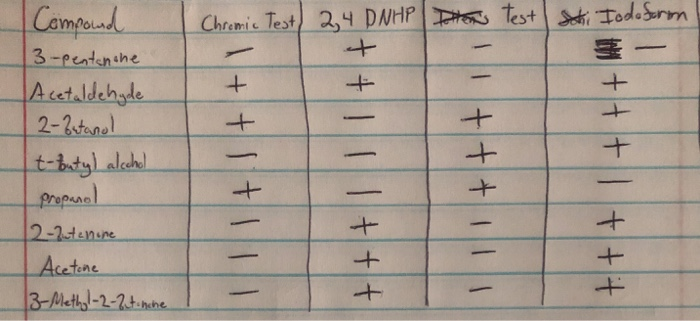 Compound Chromic Test 2,4 DNHP Test Iodoform
3-pentanone — + — —
Acetaldehyde + + — +
2-Butanol + — + +
t-butyl alcohol — — + +
propanol + — + —
2-Butanone — + — +
Acetone — + — +
3-Methyl-2-Butanone — + — +